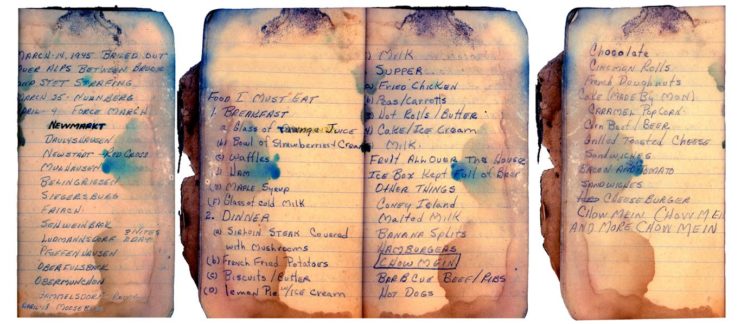 MARCH-14, 1945 BAILED OUT
OVER ALPS BETWEEN
AND STRAFING
MARCH 25 - NURNBERG
APRIL 4 FORCE MARCH
NEWMARKT
NEWSTADT - RED CROSS
MUHAUSEN
SIEGERSBURG
PFEFFENHAUSEN
OBERMUNCHON
Food I Must Eat
1. BREAKFAST
a Glass of Orange JUICE
(b) Bowl of Strawberries & Cream
(c) Waffles
(d) Ham
(e) Maple Syrup
(f) Glass of cold Milk
2. DINNER
(a) SIRLOIN STEAK COVERED
with Mushrooms
(b) French Fried Potatoes
(c) Biscuits / Butter
(d) lemon Pie w/ ICE CREAM
Milk
SUPPER
Fried Chicken
Peas/Carrotts
Hot Rolls / Butter
Cake / Ice Cream
Milk.
Fruit All Over The House
Ice Box Kept Full of Beer
OTHER THINGS
CONEY ISLAND
Malted Milk
BANANA Splits
HAMBURGERS
CHOW MEIN
BARBCUE BEEF/RIBS
HOT DOGS
Chocolate
Cinemon Rolls
French Doughnuts
Cake (MADE BY MOM)
CARAMEL POPCORN
BEER
Grilled Toasted Cheese
Sandwiches
BACON AND TOMATO
SANDWICHES
CHEESE BURGER
CHOW MEIN, CHOW MEIN
AND MORE CHOW MEIN